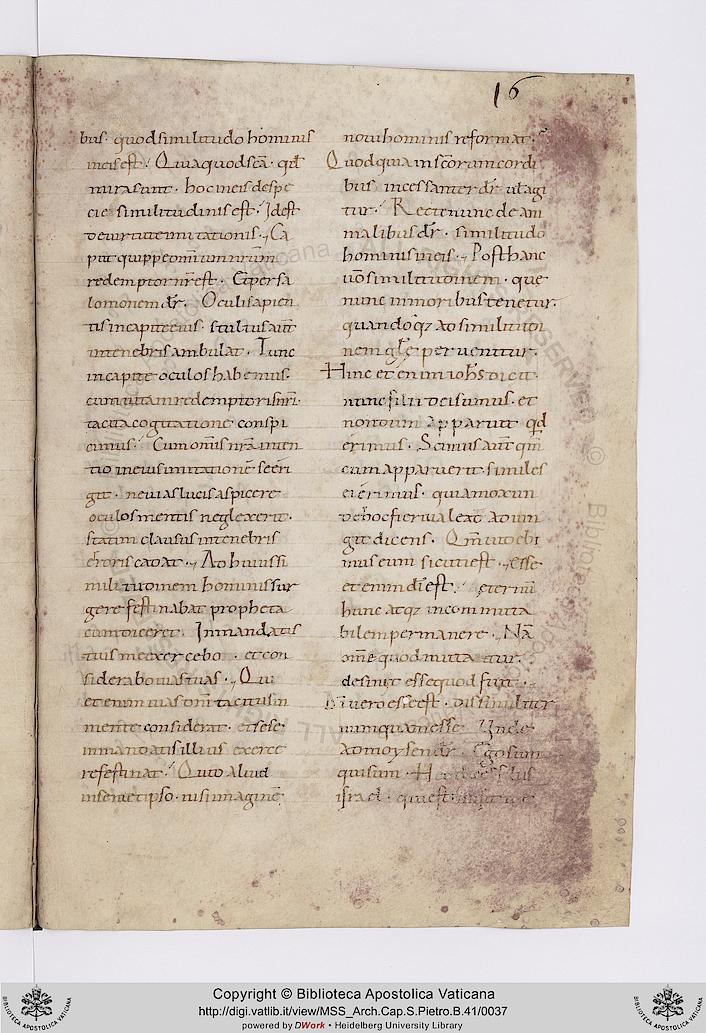 16
bus. quod similitudo hominis
in eis est. Quia quod sc̄a. qd̄
mira sunt. hoc in eis despe
cie similitudinis est. Idest
de virtute imitationis. Ca
put quippe om̄ium nr̄um
redemptor nr̄ est. Et per sa
lomonem dr̄. Oculi sapien
tis in capite eius. stultus aut̄
in tenebris ambulat. Tunc
in capite oculos habemus.
cum uitam redemptoris nr̄i.
tacita cogitatione conspi
cimus. Cum om̄is nr̄a inten
tio in eius imitatione se eri
git. ne uias lucis aspicere
oculos mentis neglexerit.
statim clausus in tenebris
erroris cadat. Ad huius si
militudinem hominis sur
gere festinabat propheta
cum diceret. In mandatis
tuis me exercebo. et con
siderabo uias tuas. Qui
et enim uias dn̄i tacitus in
mente considerat. et sese
in mandatis illius exerce
re festinat. Quid aliud
in semetipso. nisi imaginē
noui hominis reformat.
Quod quia in sc̄orum cordi
bus incessanter dr̄ ut agi
tur. Recte nunc de ani
malibus dr̄. similitudo
hominis in eis. Post hanc
uō similitudinem. que
nunc in moribus tenetur.
quandoq; ad similitudi
nem glē peruenitur.
Hinc et enim ioh̄s dicit.
nunc filii dei sumus. et
nondum apparuit qd̄
erimus. Scimus aut̄ qm̄
cum apparuerit. similes
ei erimus. quia mox un
de hoc fieri ualeat adiun
git dicens. Qm̄ uidebi
mus eum sicuti est. Esse
et enim dī est. eternū
hunc atq; incommuta
bilem permanere. Nā
om̄e quod mutatur.
desinit esse quod fuit.
Dī uero esse est. dissimilitur
numquam esse. Unde
ad moysen dr̄. Ego sum
qui sum. Hec dices filiis
israel. qui est. misit me
Copyright © Biblioteca Apostolica Vaticana
http://digi.vatlib.it/view/MSS_Arch.Cap.S.Pietro.B.41/0037
powered by DWork • Heidelberg University Library